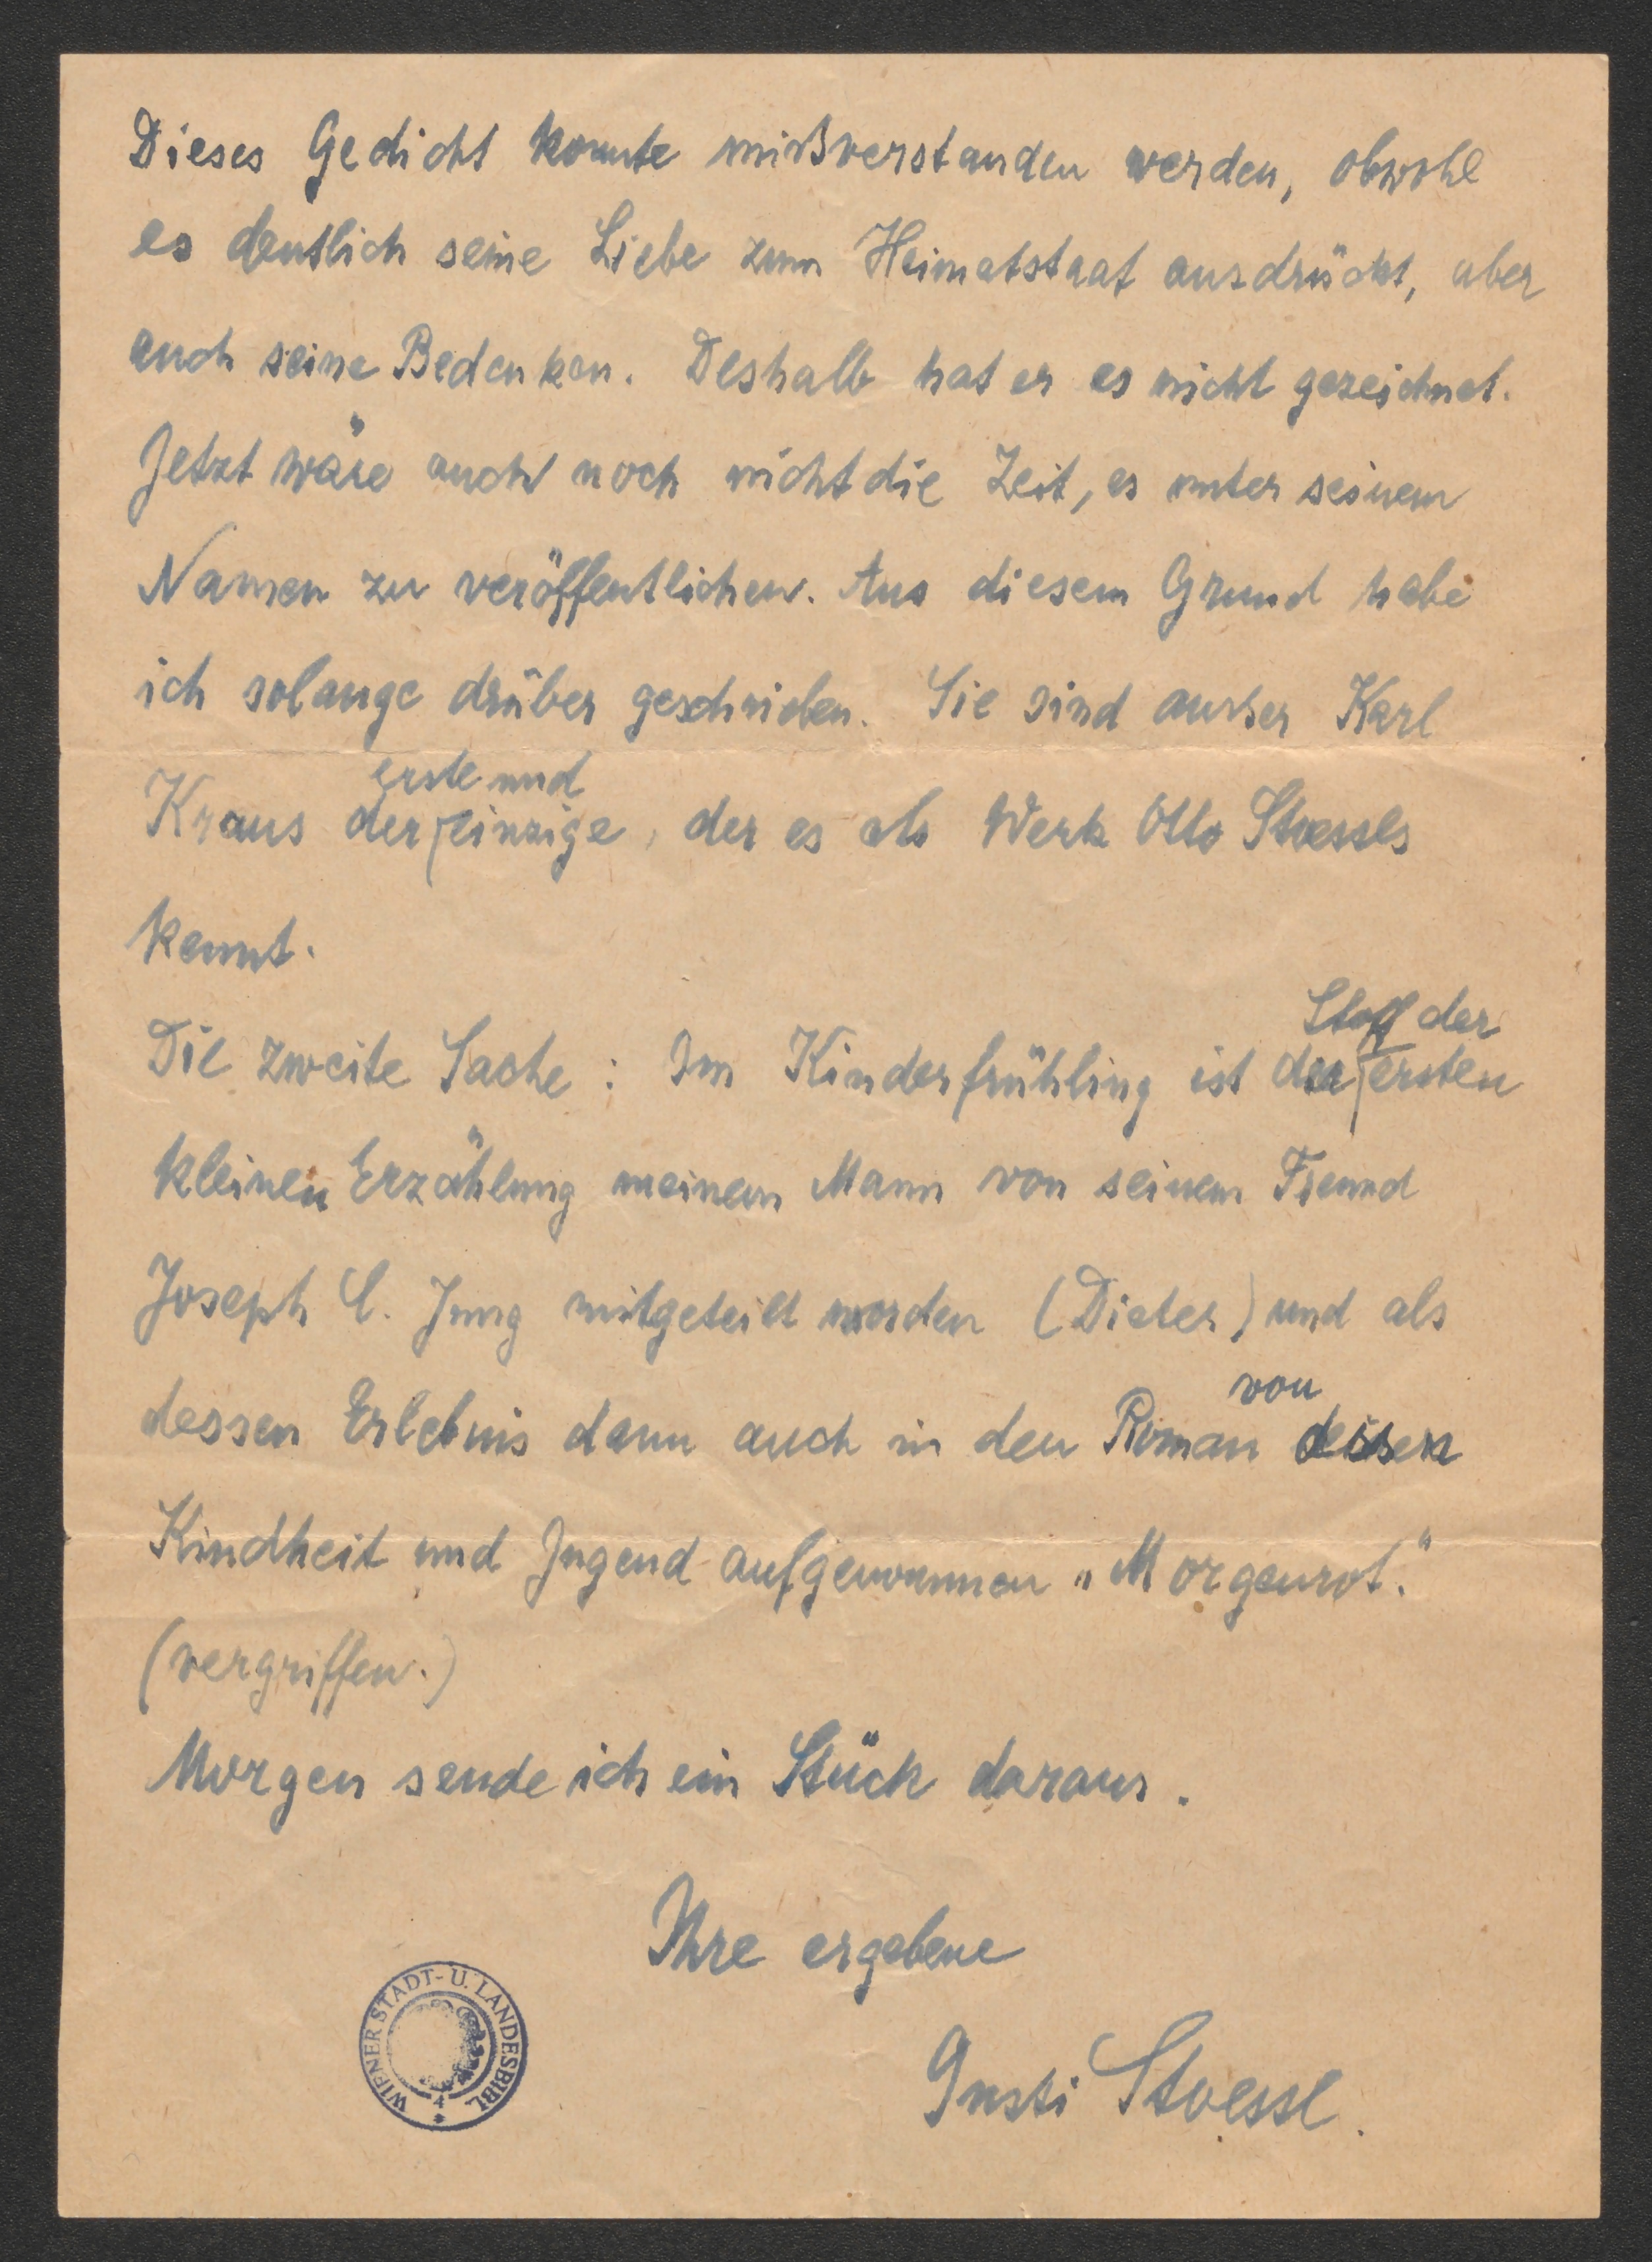 Dieses Gedicht konnte mißverstanden werden, obwohl
es deutlich seine Liebe zum Heimatstaat ausdrückt, aber
auch seine Bedenken. Deshalb hat er es nicht gezeichnet.
Jetzt wäre auch noch nicht die Zeit, es unter seinem
Namen zu veröffentlichen. Aus diesem Grund habe
ich solange drüber geschrieben. Sie sind ausser Karl
erste und
Kraus der einzige, der es als Werk Otto Stoessls
kennt.
Stoff der
Die zweite Sache: Im Kinderfrühling ist der ersten
kleinen Erzählung meinem Mann von seinem Freund
Joseph C. Jung mitgeteilt worden (Dieter) und als
von
dessen Erlebnis dann auch in den Roman dessen
Kindheit und Jugend aufgenommen „Morgenrot."
(vergriffen.)
Morgen sende ich ein Stück daraus.
Ihre ergebene
Gusti Stoessl.
WIENER STADT- U. LANDESBIBL.
4